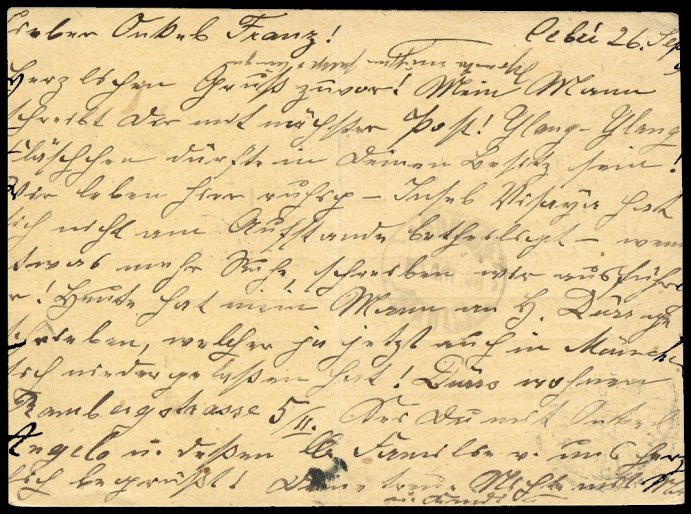 Lieber Onkel Franz! Cebú 26. Sep
Herzlichen Gruß zuvor! Mein Mann
schreibt Dir mit nächster Post! Ylang-Ylang
Fläschchen dürfte in Deinem Besitz sein!
Wir leben hier ruhig – Insel Visaya hat
sich nicht am Aufstande betheiligt – wenn
etwas mehr Ruhe, schreiben wir ausführ
r! Heute hat mein Mann an H. Dürr ge
schrieben, welcher ja jetzt auch in Münch
sich niedergelaßen hat! Dürrs wohnen
Rambergstrasse 5/II. Sei Du mit Onkel
Angelo u. deßen lb Familie v. uns herz
lich begrüßt! Deine treue Nichte